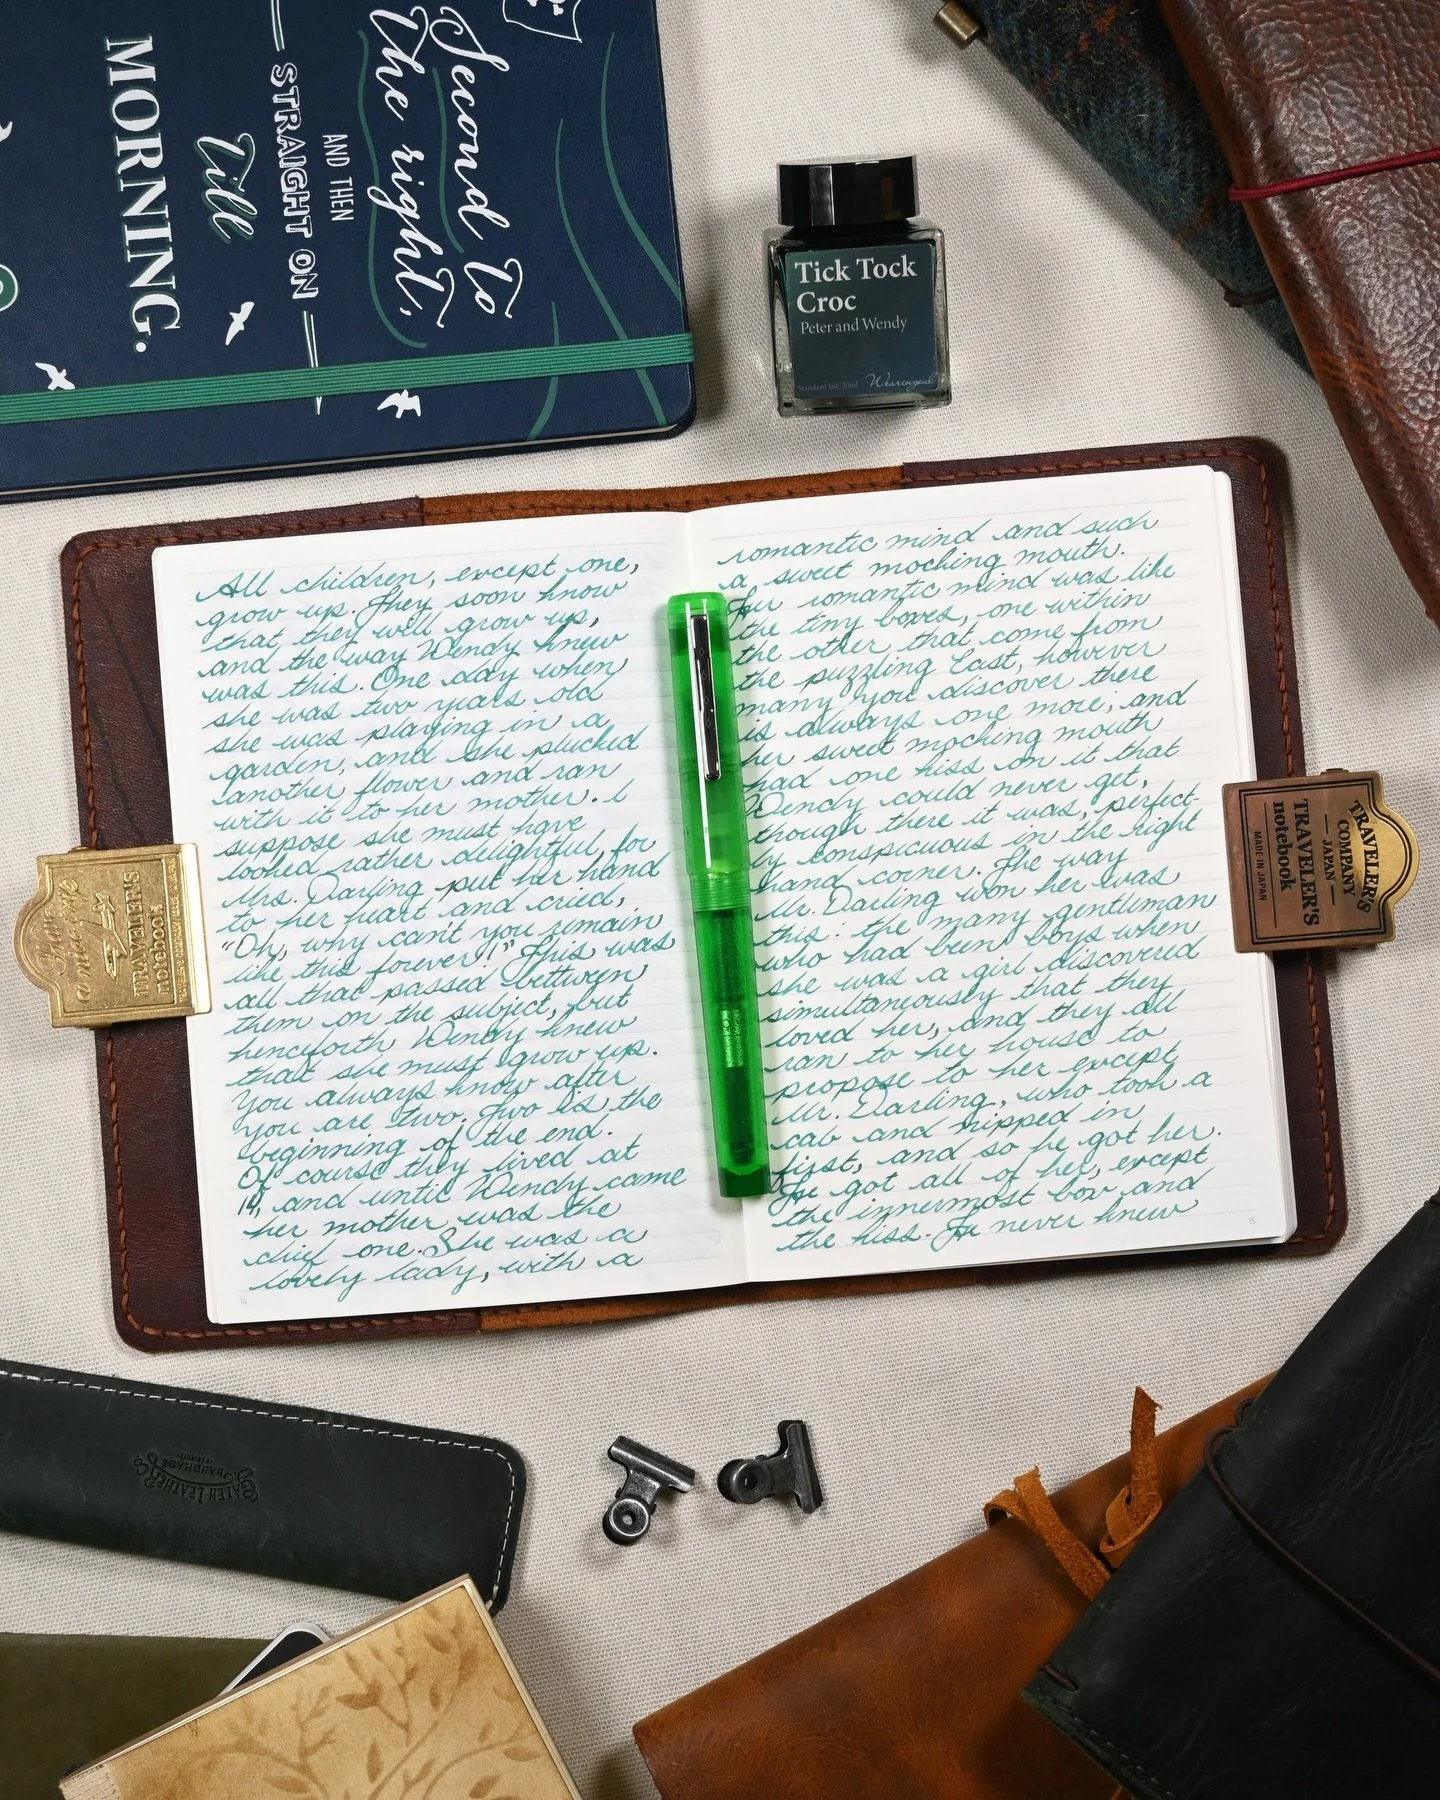 Second to
The right,
AND THEN
STRAIGHT ON
Till
MORNING.
Tick Tock
Croc
Peter and Wendy
Standard Ink 30ml Wearingeul
All children, except one,
grow up. They soon know
that they will grow up,
and the way Wendy knew
was this. One day when
she was two years old
she was playing in a
garden, and she plucked
another flower and ran
with it to her mother. I
suppose she must have
looked rather delightful, for
Mrs. Darling put her hand
to her heart and cried,
"Oh, why can't you remain
like this forever!" This was
all that passed between
them on the subject, but
henceforth Wendy knew
that she must grow up.
You always know after
you are two. Two is the
beginning of the end.
Of course they lived at
14, and until Wendy came
her mother was the
chief one. She was a
lovely lady, with a
14
romantic mind and such
a sweet mocking mouth.
Her romantic mind was like
the tiny boxes, one within
the other, that come from
the puzzling East, however
many you discover there
is always one more; and
her sweet mocking mouth
had one kiss on it that
Wendy could never get,
though there it was, perfect-
ly conspicuous in the right
hand corner. The way
Mr. Darling won her was
this: the many gentleman
who had been boys when
she was a girl discovered
simultaneously that they
loved her, and they all
ran to her house to
propose to her except
Mr. Darling, who took a
cab and nipped in
first, and so he got her.
He got all of her, except
the innermost box and
the kiss. He never knew
15
TRAVELER'S
notebook
TRAVELER'S
COMPANY
JAPAN
TRAVELER'S
notebook
MADE IN JAPAN
GALEN LEATHER Co
HANDMADE